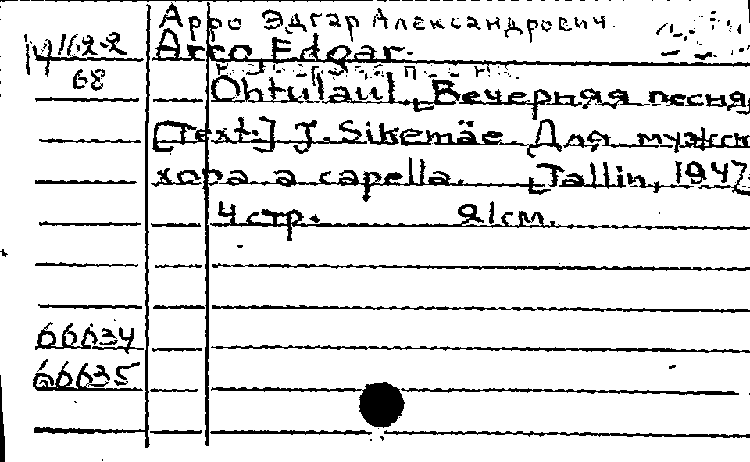 Арро Эдгар Александрович.
М162-2 Arro Edgar.
68
Ohtulaul. [Вечерняя песня
[Text:] J. Sikemäe Для мужск
хора a capella. [Tallin, 1947]
4 стр. 21см.
66634
66635